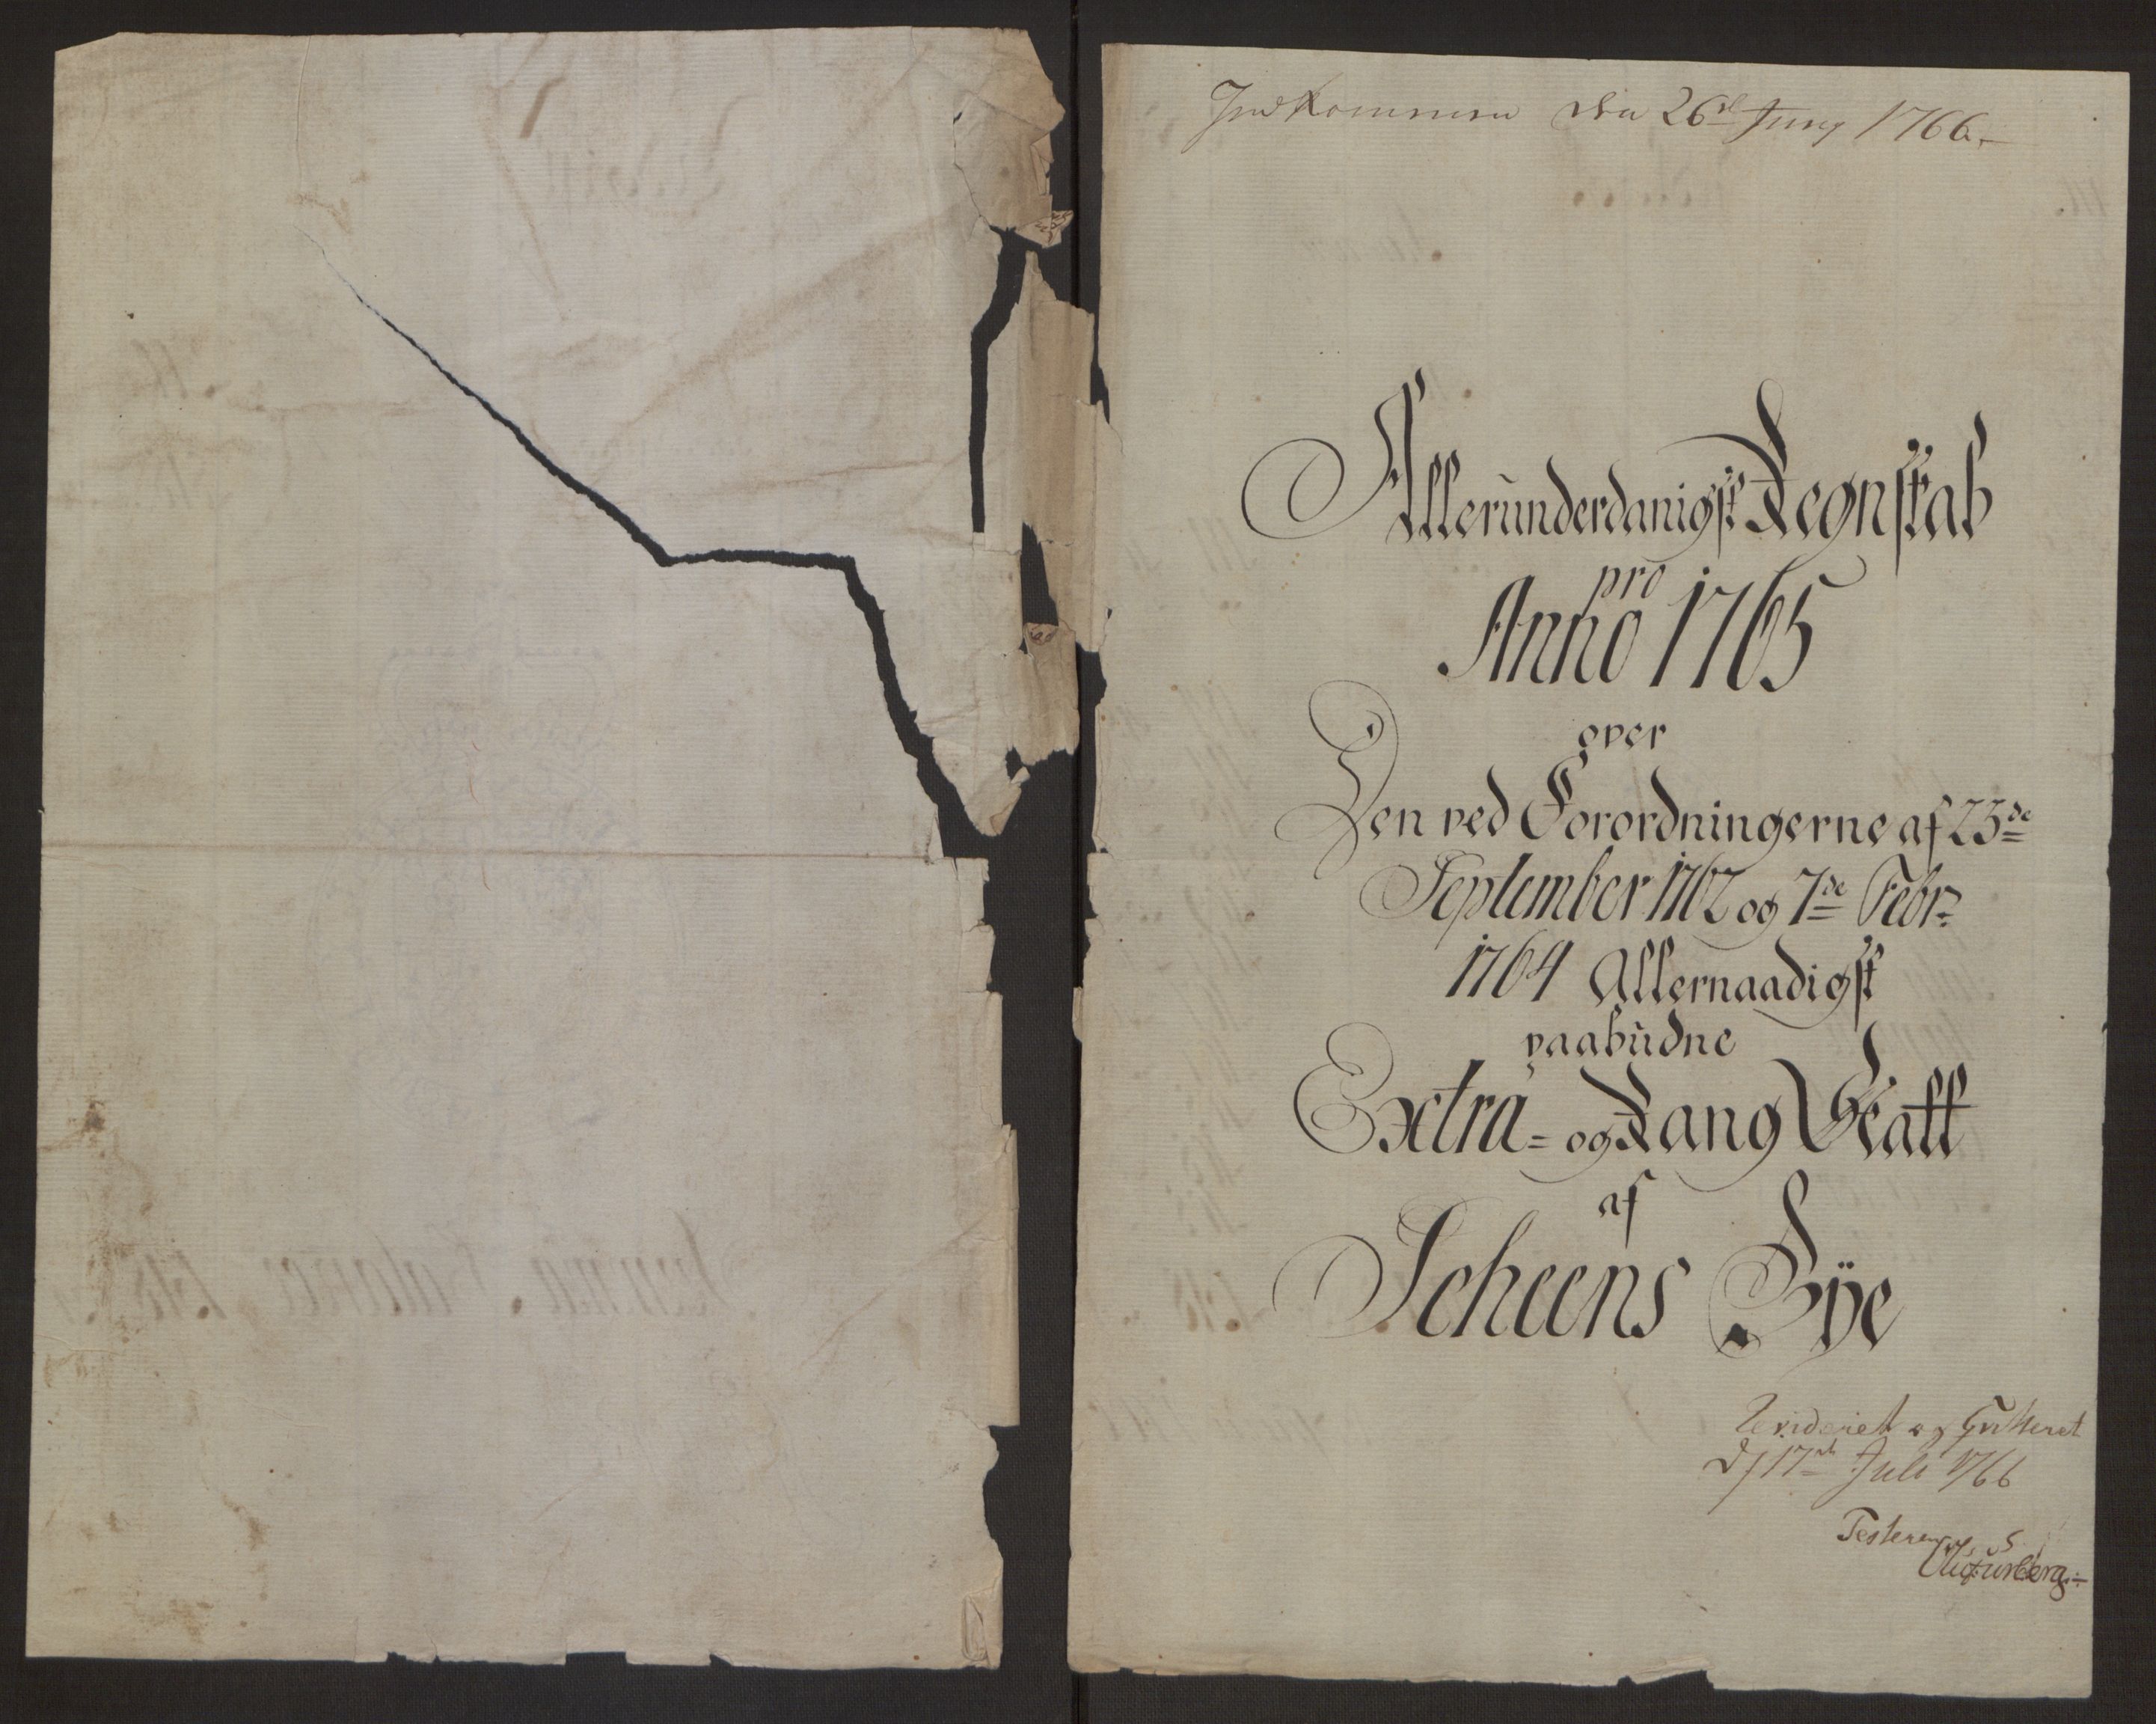 Indkommen den 26de Juny 1766.
Allerunderdanigst Regnskab
pro
Anno 1765
over
Den ved Forordningerne af 23de
September 1762 og 7de Febr:
1764 Allernaadigst
paabudne
Extra- og Rang Skatt
af
Scheens Bÿe
Revideret og Qvitteret
d 17de Juli 1766